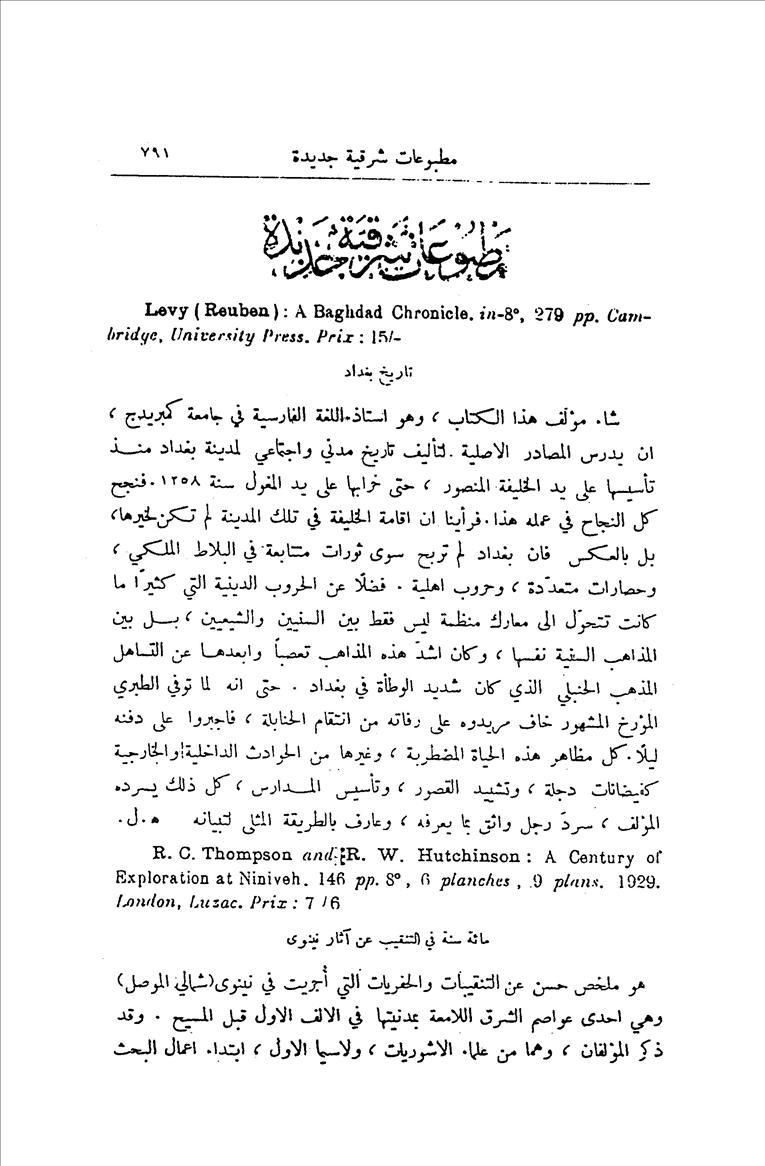 مطبوعات شرقية جديدة ٧٩١
مطبوعات شرقية جديدة
Levy (Reuben): A Baghdad Chronicle. in-8°, 279 pp. Cam-
bridge, University Press. Prix: 15/-
تاريخ بغداد
شاء مؤلف هذا الكتاب ، وهو استاذ اللغة الفارسية في جامعة كمبريدج ،
ان يدرس المصادر الاصلية لتأليف تاريخ مدني واجتماعي لمدينة بغداد منذ
تأسيسها على يد الخليفة المنصور ، حتى خرابها على يد المغول سنة ١٢٥٨ . فنجح
كل النجاح في عمله هذا . فرأينا ان اقامة الخليفة في تلك المدينة لم تكن لخيرها ،
بل بالعكس فان بغداد لم تربح سوى ثورات متتابعة في البلاط الملكي ،
وحصارات متعدّدة ، وحروب اهلية . فضلًا عن الحروب الدينية التي كثيرًا ما
كانت تتحوّل الى معارك منظمة ليس فقط بين السنيين والشيعيين ، بل بين
المذاهب السنية نفسها ، وكان اشدّ هذه المذاهب تعصباً وابعدها عن التساهل
المذهب الحنبلي الذي كان شديد الوطأة في بغداد . حتى انه لما توفي الطبري
المؤرخ المشهور خاف مريدوه على رفاته من انتقام الحنابلة ، فاجبروا على دفنه
ليلًا . كل مظاهر هذه الحياة المضطربة ، وغيرها من الحوادث الداخلية والخارجية
كفيضانات دجلة ، وتشييد القصور ، وتأسيس المدارس ، كل ذلك يسرده
المؤلف ، سردَ رجل واثق بما يعرفه ، وعارف بالطريقة المثلى لتبيانه ه . ل .
R. C. Thompson and R. W. Hutchinson: A Century of
Exploration at Niniveh. 146 pp. 8°, 6 planches, 9 plans. 1929.
London, Luzac. Prix: 7/6
مائة سنة في التنقيب عن آثار نينوى
هو ملخص حسن عن التنقيبات والحفريات التي أُجريت في نينوى (شمالي الموصل)
وهي احدى عواصم الشرق اللامعة بمدنيتها في الالف الاول قبل المسيح . وقد
ذكر المؤلفان ، وهما من علماء الاشوريات ، ولاسيما الاول ، ابتداء اعمال البحث